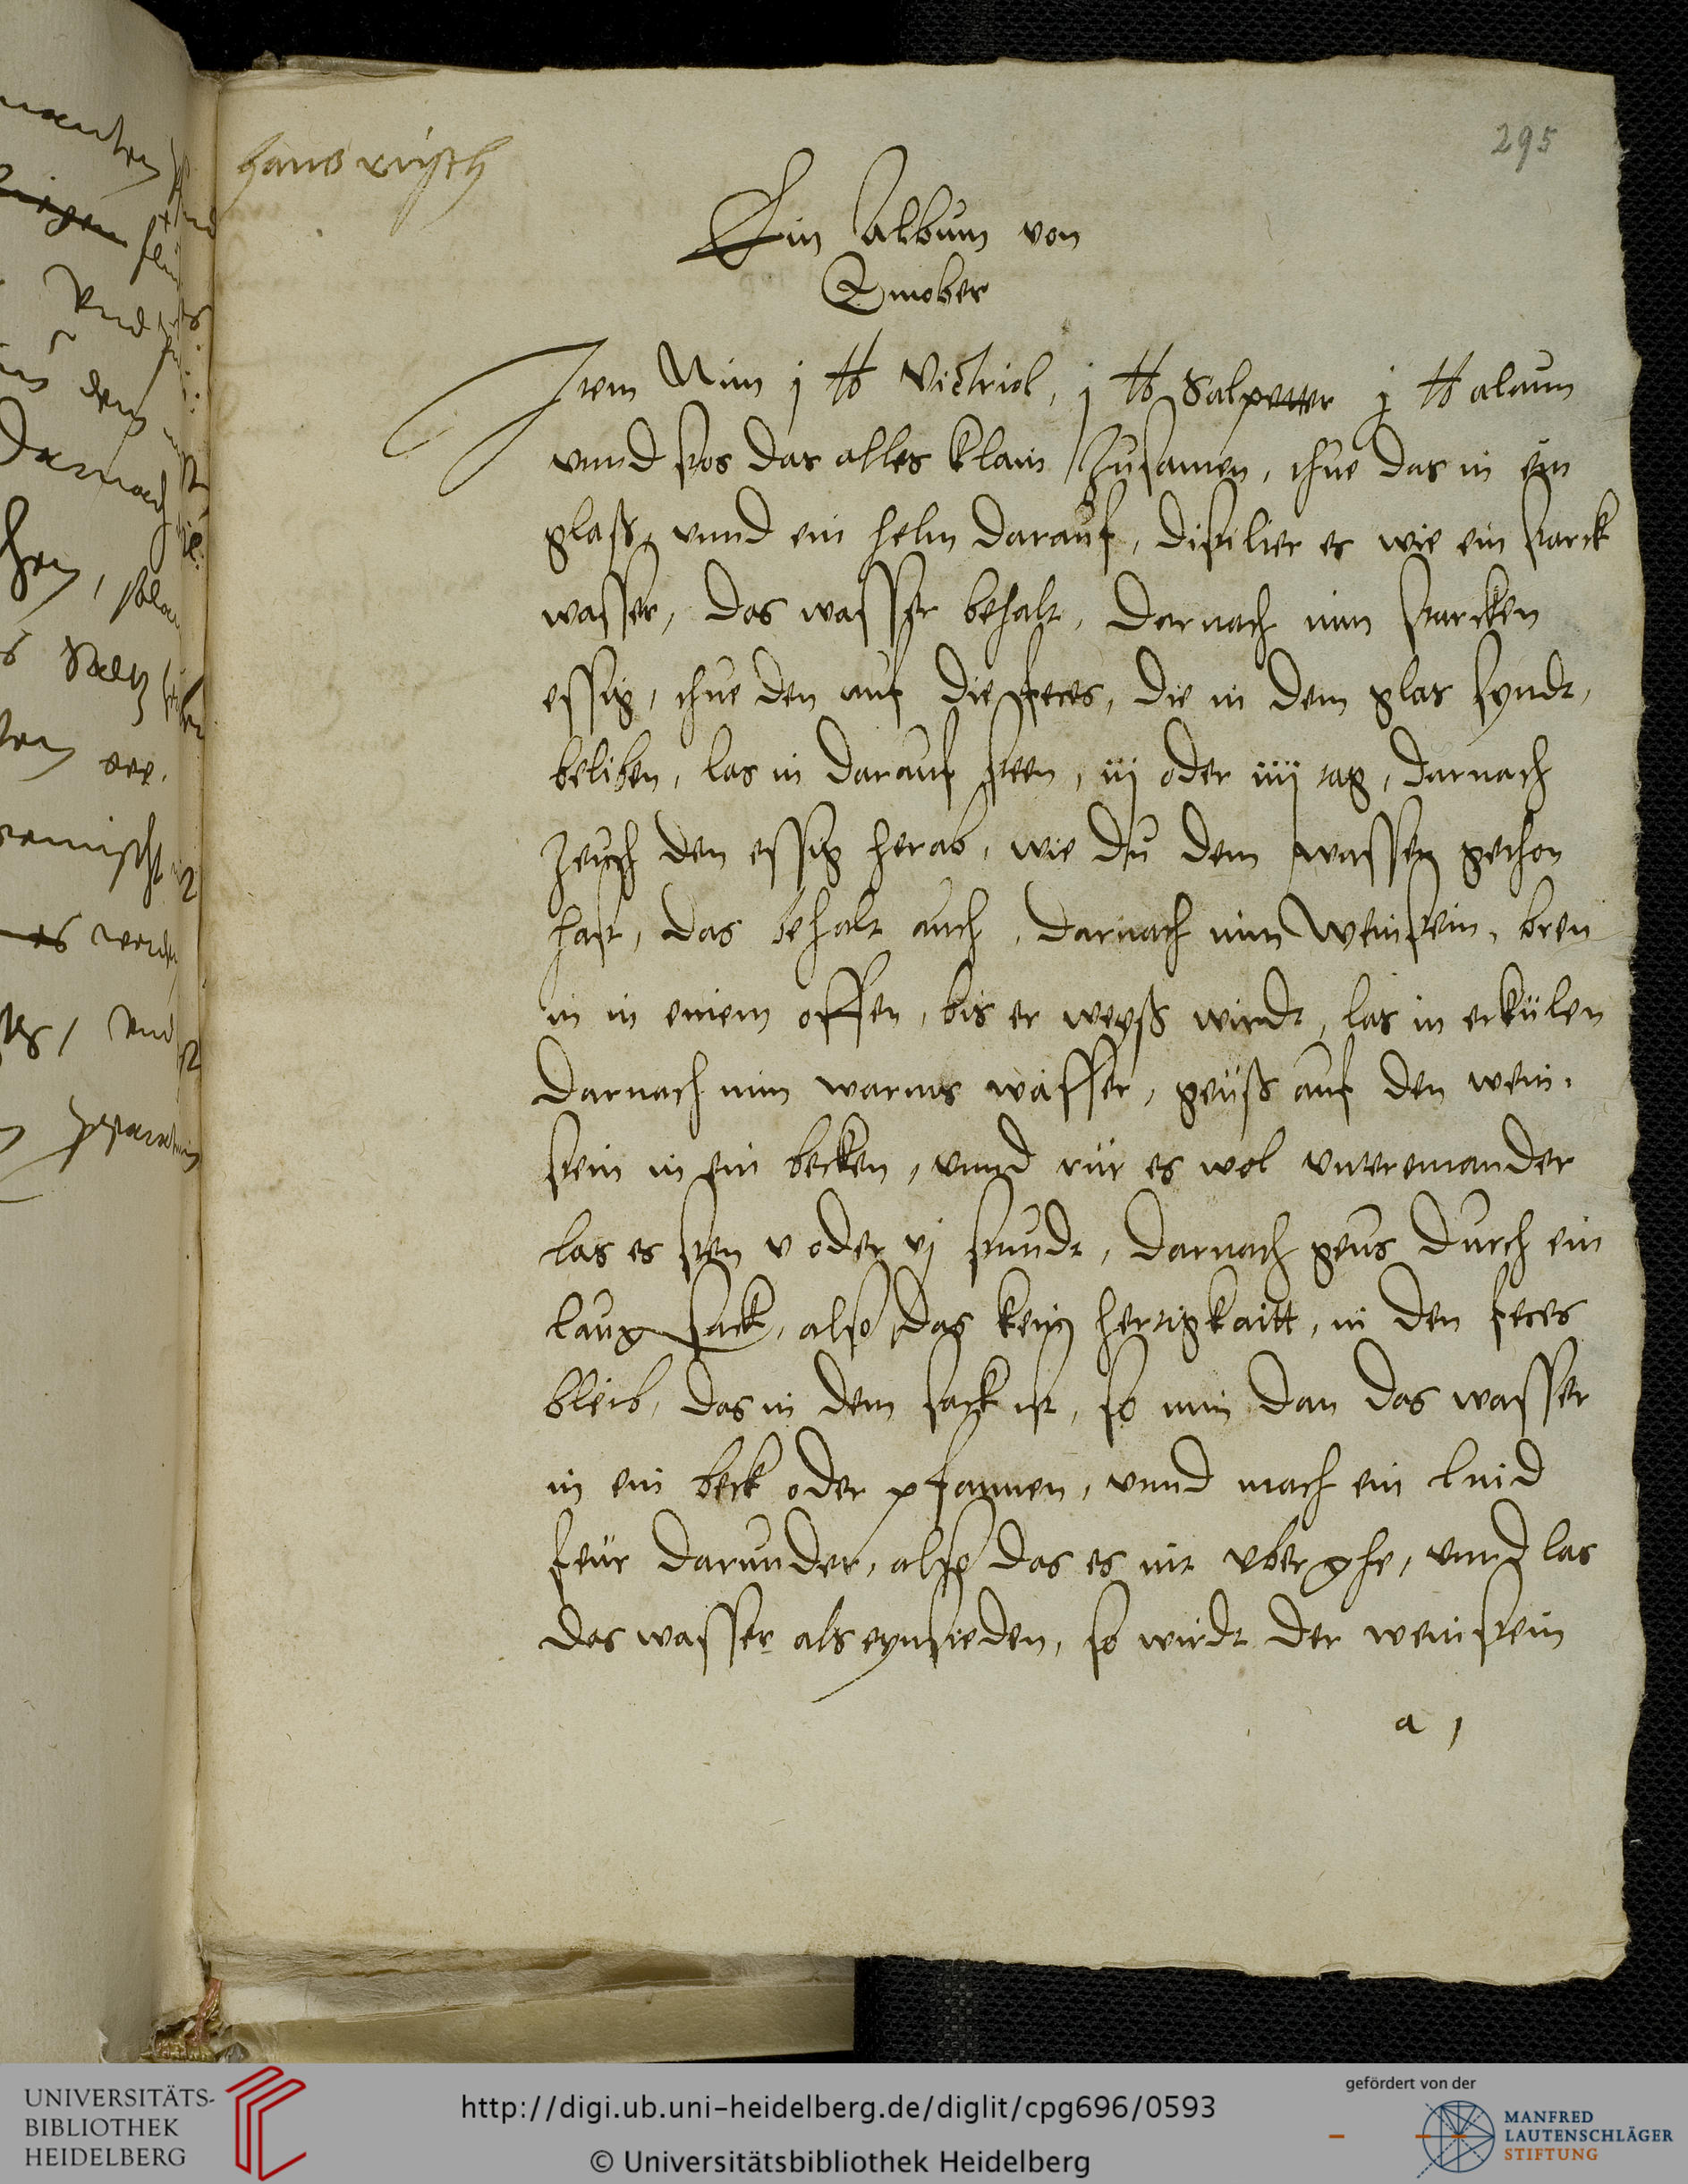 295
hans rüsch
Ein album von
Zinober
Item Nim j ℔ Victriol, j ℔ Salpetter j ℔ alaun
vnnd stos das alles klain zusamen, thue das in ein
glaß, vnnd ein helm darauf, distilier es wie ein starck
wasser, das wasser behalt, darnach nim starcken
essig, thue den auf die feces, die in dem glas syndt,
beliben, las in darauf steen, iij oder iiij tag, darnach
zeuch den essig herab, wie du dem wassen gethon
hast, das behalt auch, darnach nim weinstein, bren
in in einem offen, bis er weyß wirdt, las in erkülen
darnach nim warms wasser, geüß auf den wein-
stein in ein becken, vnnd rür es wol vntereinander
las es sten v oder vj stundt, darnach geus durch ein
laug sack, also das kein hertigkaitt, in den feces
bleib, das in dem sack ist, so nim dan das wasser
in ein beck oder pfannen, vnnd mach ein lind
feür darunder, also das es nit vber ghe, vnnd las
das wasser als eynsieden, so wirdt der weinstein
a j
UNIVERSITÄTS-
BIBLIOTHEK
HEIDELBERG
http://digi.ub.uni-heidelberg.de/diglit/cpg696/0593
© Universitätsbibliothek Heidelberg
gefördert von der
MANFRED
LAUTENSCHLÄGER
STIFTUNG